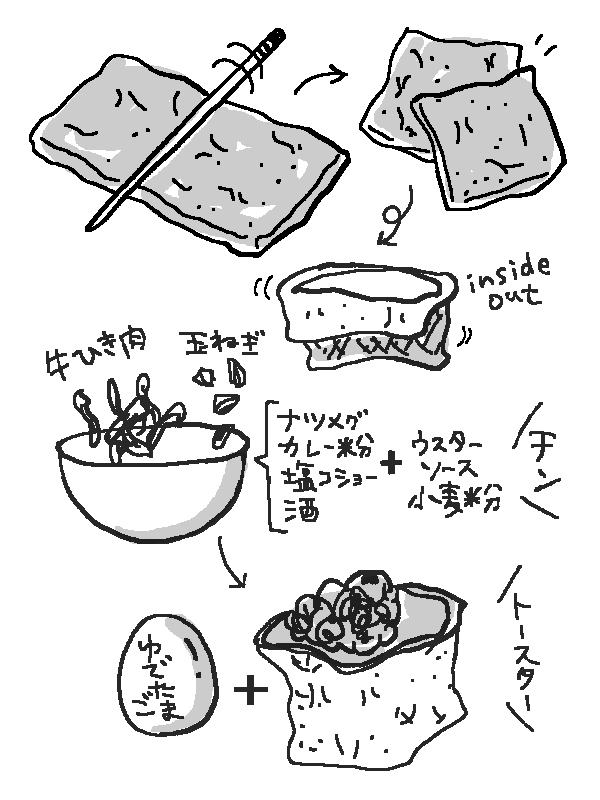 inside
out
牛ひき肉
玉ねぎ
ナツメグ
カレー粉
塩コショー
酒
+
ウスター
ソース
小麦粉
チン
ゆで
たま
ご
+
トースター